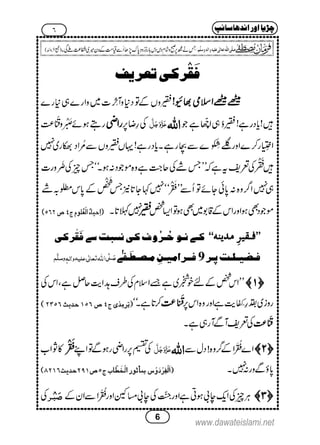 ٦
چڑیا اور اندھا سانپ
فَقْر کی تعریف
میٹھے میٹھے اسلامی بھائیو! فقیروں کے تو دنیا و آخرت میں وارے ہی نیارے
ہیں! یاد رہے! فقیر وہی اچھا ہے جو اللہ عَزَّوَجَلَّ کی رضا پر راضی رہتے ہوئے صَبْر و قناعت
اختیار کرے اور گلے شکوے سے بچا رہے۔ یاد رہے! یہاں فقیروں سے مُراد بھکاری نہیں
ہیں۔ فَقْر کی تعریف یہ ہے کہ ’’جس چیز کی حاجت ہے وہ موجود نہ ہو۔‘‘ جس چیز کی ضرورت
نہیں اگر وہ نہ پائی جائے تو اسے ’’فَقْر‘‘ نہیں کہا جاتا نیز جس شخص کے پاس مطلوبہ شے
موجود بھی ہو اور اس کے قابو میں بھی ہو تو ایسا شخص فقیر نہیں کہلاتا۔ (اِحیاءُ الْعُلوم ج٤ ص ٥٦٢)
’’فقیرِ مدینہ‘‘ کے نو حُرُوف کی نسبت سے فَقْر کی
فضیلت پر 9 فرامینِ مصطَفٰے صَلَّی اللہُ تَعَالٰی علیہ واٰلہٖ وسلَّم
﴿١﴾ ’’اُس شخص کے لئے خوشخبری ہے جسے اسلام کی طرف ہدایت حاصل ہے، اس کی
روزی بقدرِ کفایت ہے اور وہ اس پر قناعت کرتا ہے۔‘‘ (تِرمِذی ج٤ ص ١٥٦ حدیث ٢٣٥٦)
قناعت کی تعریف آگے آرہی ہے۔
﴿٢﴾ اے فُقَرا کے گروہ! دل سے اللہ عَزَّوَجَلَّ کی تقسیم پر راضی رہو گے تو اپنے فَقْر کا ثواب
پاؤ گے ورنہ نہیں۔ (اَلْفِرْدَوْس بمأثور الْخِطَاب ج٥ ص ٢٩١ حدیث ٨٢١٦)
﴿٣﴾ ہر چیز کی ایک چابی ہوتی ہے اور جنّت کی چابی مساکین اور فُقَرا سے ان کے صَبْر کی
6
www.dawateislami.net